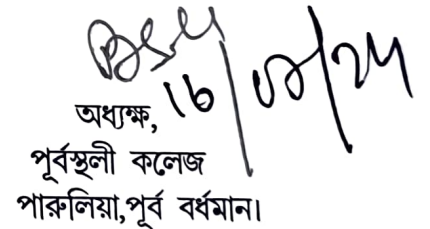 অধ্যক্ষ,
পূর্বস্থলী কলেজ
পারুলিয়া,পূর্ব বর্ধমান।